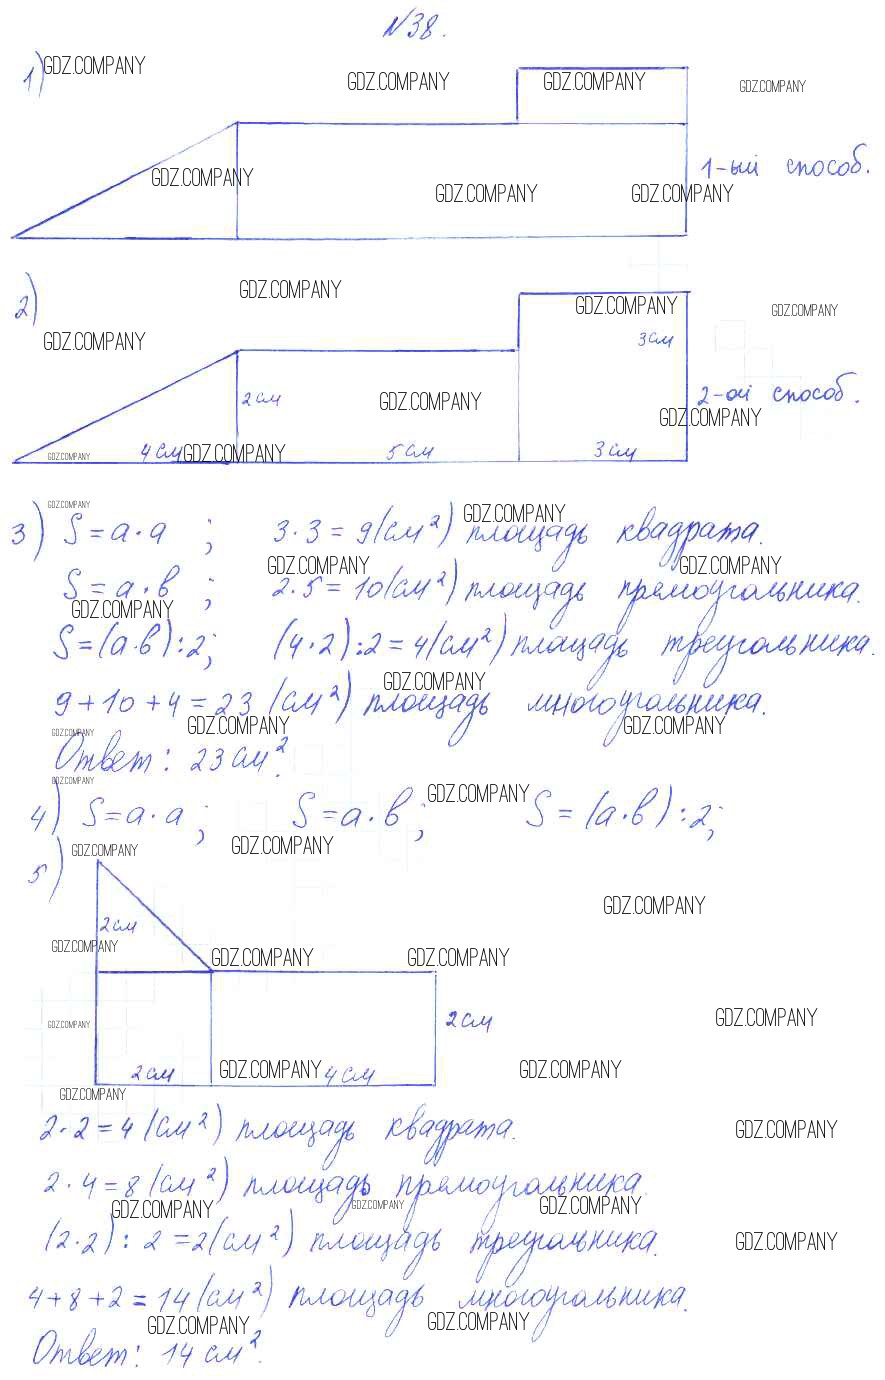 №38.
1) GDZ.COMPANY
GDZ.COMPANY GDZ.COMPANY GDZ.COMPANY
GDZ.COMPANY 1-ый способ.
GDZ.COMPANY GDZ.COMPANY
2) GDZ.COMPANY
GDZ.COMPANY GDZ.COMPANY
GDZ.COMPANY 3см
2см GDZ.COMPANY 2-ой способ.
GDZ.COMPANY
GDZ.COMPANY 4см GDZ.COMPANY 5см 3см
GDZ.COMPANY GDZ.COMPANY
3) S=a·a ; 3·3=9(см²) площадь квадрата.
GDZ.COMPANY GDZ.COMPANY
S=a·в ; 2·5=10(см²) площадь прямоугольника.
GDZ.COMPANY
S=(a·в):2; (4·2):2=4(см²) площадь треугольника.
GDZ.COMPANY
9+10+4=23 (см²) площадь многоугольника.
GDZ.COMPANY GDZ.COMPANY GDZ.COMPANY
Ответ: 23см².
GDZ.COMPANY GDZ.COMPANY
4) S=a·a ; S=a·в ; S=(a·в):2;
GDZ.COMPANY GDZ.COMPANY
5)
GDZ.COMPANY
2см
GDZ.COMPANY GDZ.COMPANY GDZ.COMPANY
GDZ.COMPANY 2см GDZ.COMPANY
2см GDZ.COMPANY 4см GDZ.COMPANY
GDZ.COMPANY
2·2=4(см²) площадь квадрата. GDZ.COMPANY
2·4=8(см²) площадь прямоугольника.
GDZ.COMPANY GDZ.COMPANY GDZ.COMPANY
(2·2):2=2(см²) площадь треугольника. GDZ.COMPANY
4+8+2=14(см²) площадь многоугольника.
GDZ.COMPANY GDZ.COMPANY
Ответ: 14см².